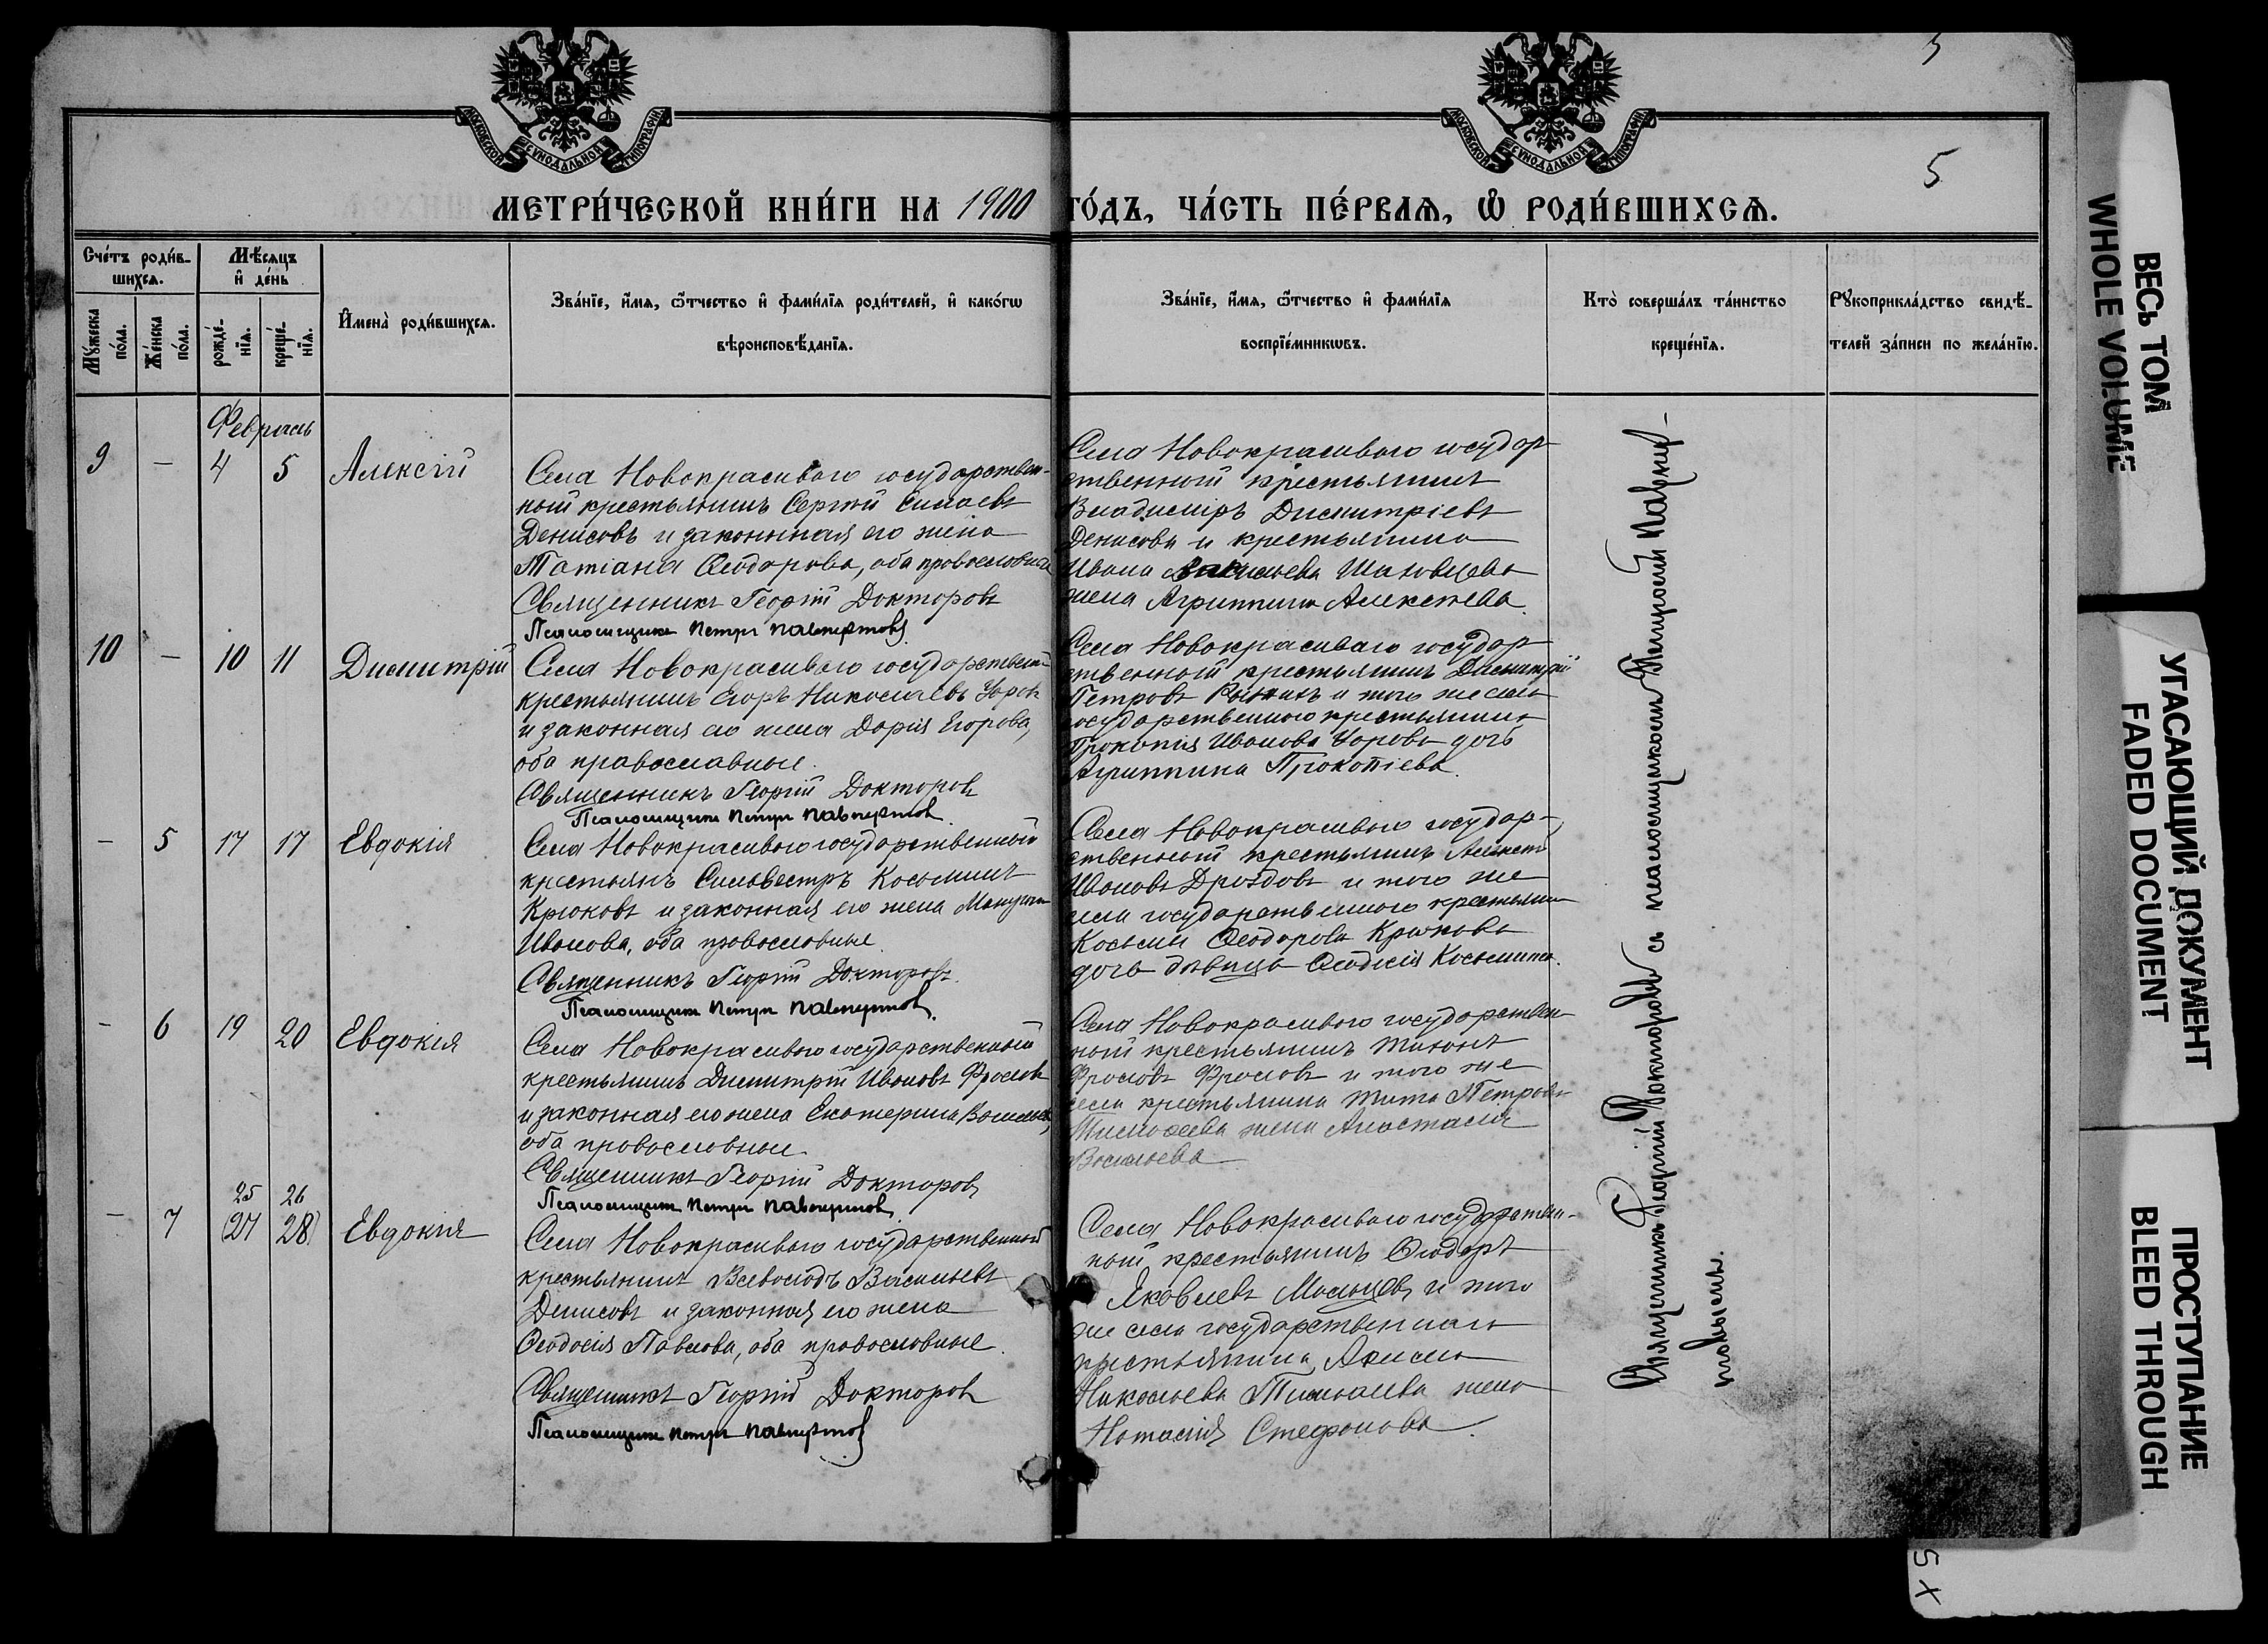 МОСКОВСКОЙ СѴНОДАЛЬНОЙ ТИПОГРАФІИ
МОСКОВСКОЙ СѴНОДАЛЬНОЙ ТИПОГРАФІИ
5
5
МЕТРИ́ЧЕСКОЙ КНИ́ГИ НА 1900 ГО́ДЪ, ЧА́СТЬ ПЕ́РВАѦ, Ѡ҆ РОДИ́ВШИХСѦ.
Сче́тъ роди́в-
шихсѧ.
Мꙋ́жеска по́ла.
Же́нска по́ла.
Мѣ́сѧцъ
и҆ де́нь
рожде́-нїѧ.
креще́-нїѧ.
И҆мена̀ роди́вшихсѧ.
Зва́нїе, и҆́мѧ, ѻ҆́тчество и҆ фами́лїѧ роди́телей, и҆ како́гѡ
вѣроисповѣ́данїѧ.
Зва́нїе, и҆́мѧ, ѻ҆́тчество и҆ фами́лїѧ
воспрїе́мникѡвъ.
Кто̀ соверша́лъ та́инство
креще́нїѧ.
Рꙋкоприкла́дство свидѣ́-
телей за́писи по жела́нїю.
Февраль
9 — 4 5 Алексій
Села Новокрасиваго государствен-
ный крестьянинъ Сергій
Денисовъ и законная его жена
Татіана Ѳеодорова, оба православные
Священникъ Георгій Докторовъ
Псаломщикъ Петръ Павпертовъ
Села Новокрасиваго государ-
ственный крестьянинъ
Владиміръ Димитріевъ
Денисовъ и крестьянина
Ивана Васильева
жена Агриппина Алексѣева.
10 — 10 11 Димитрій
Села Новокрасиваго государствен-
крестьянинъ Егоръ Николаевъ Уаровъ
и законная его жена Дарія Егорова,
оба православные.
Священникъ Георгій Докторовъ
Псаломщикъ Петръ Павпертовъ.
Села Новокрасиваго государ-
ственный крестьянинъ Димитрій
Петровъ и того же села
государственнаго крестьянина
Прокопія Иванова Уарова дочь
Агриппина Прокопіева.
— 5 17 17 Евдокія
Села Новокрасиваго государственный
крестьянъ Сильвестръ Косьминъ
Крюковъ и законная его жена
Иванова, оба православные.
Священникъ Георгій Докторовъ.
Псаломщикъ Петръ Павпертовъ.
Села Новокрасиваго государ-
ственный крестьянинъ Алексѣй
Ивановъ Дроздовъ и того же
села государственнаго крестьянина
Косьмы Ѳеодорова Крюкова
дочь дѣвица Ѳеодосія Косьмина.
- 6 19 20 Евдокія
Села Новокрасиваго государственный
крестьянинъ Димитрій Ивановъ Фроловъ
и законная его жена Екатерина Васильева,
оба православные.
Священникъ Георгій Докторовъ
Псаломщикъ Петръ Павпертовъ.
Села Новокрасиваго государствен-
ный крестьянинъ Тихонъ
Фроловъ Фроловъ и того же
села крестьянина Тита Петрова
Тимоѳеева жена Анастасія
Васильева
25 26
— 7 (27 28) Евдокія
Села Новокрасиваго государственный
крестьянинъ Всеволодъ Васильевъ
Денисовъ и законная его жена
Ѳеодосія Павлова, оба православные.
Священникъ Георгій Докторовъ
Псаломщикъ Петръ Павпертовъ
Села Новокрасиваго государствен-
ный крестьянинъ Ѳеодоръ
Яковлевъ Мальцевъ и того
же села государственнаго
крестьянина
Николаева жена
Наталія Стефанова.
Священникъ Георгій Докторовъ съ псаломщикомъ Петромъ Павпер-
товымъ.
ВЕСЬ ТОМ
WHOLE VOLUME
УГАСАЮЩИЙ ДОКУМЕНТ
FADED DOCUMENT
ПРОСТУПАНИЕ
BLEED THROUGH
5 X